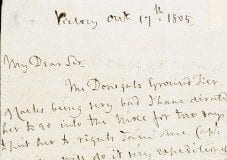 Victory Oct. 17th 1805
My Dear Sir
The Donegals Ground Tier
Casks being very bad I have directed
her to go into the Mole for two days
put her to rights
will do it very expeditiously